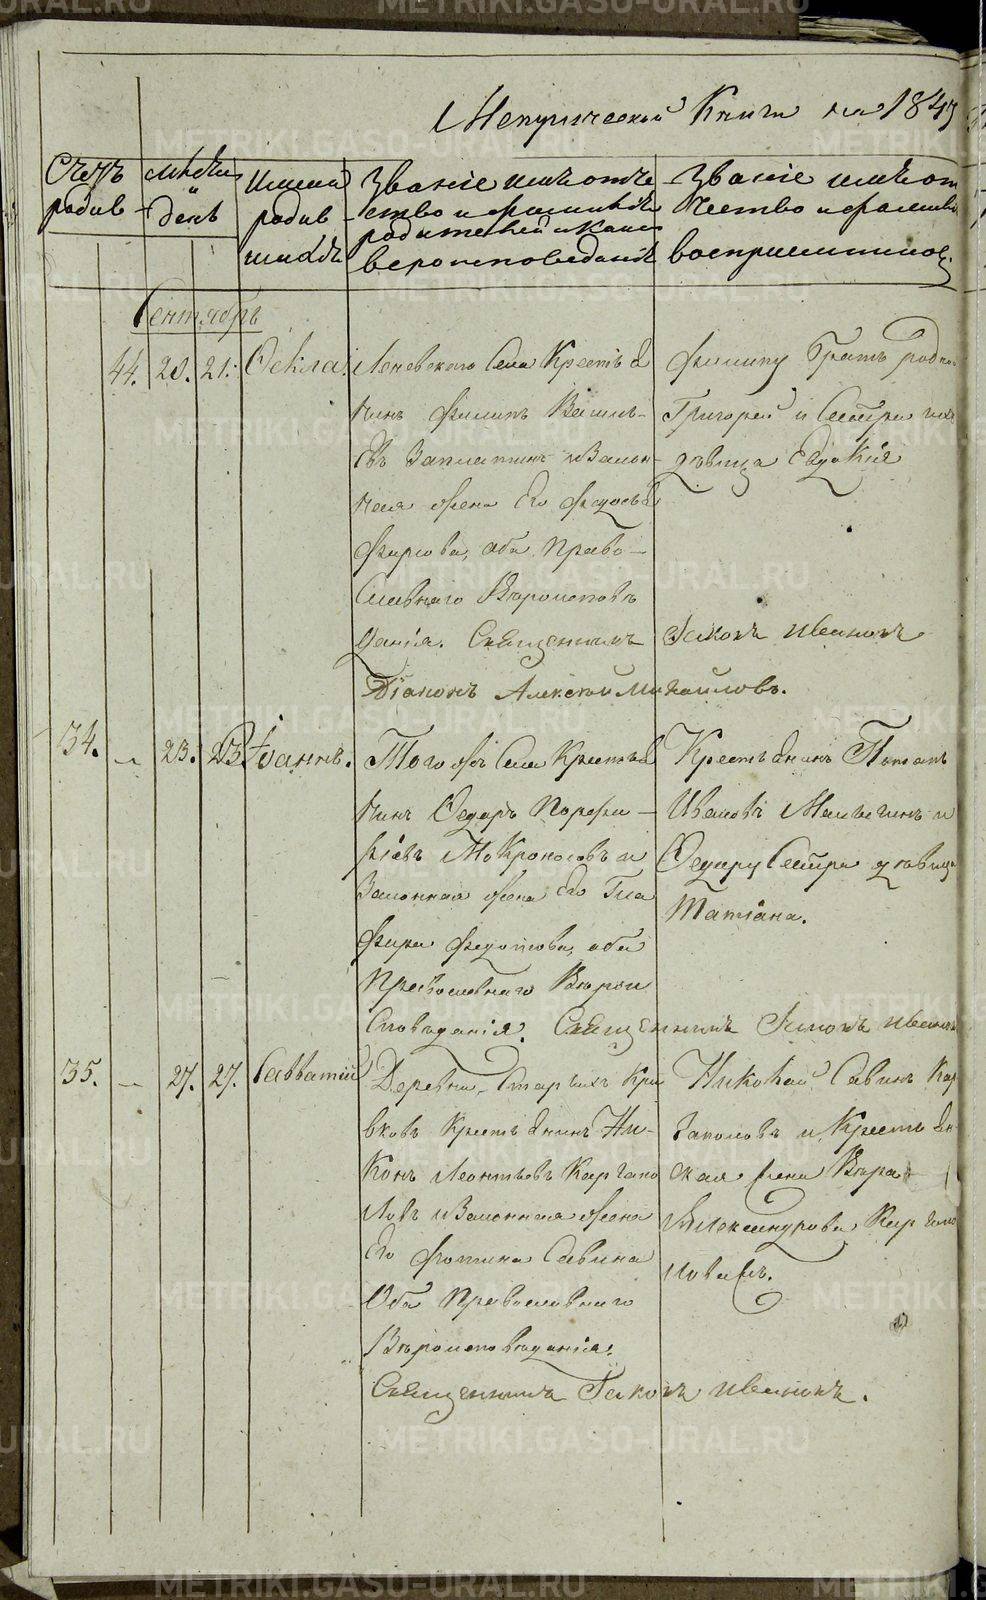 Метрической Книги на 184
Счетъ родив
мѣсяцъ и день
Имена родив шихъ
Званіе имя отче ство и фамилія родителей и какого вероисповеданія
Званіе имя от чество и фамилія восприемников
Сентябрь
44. 20. 21. Ѳекла.
Села Крестья
нинъ Филипъ Василь-
евъ и Закон-
ная жена Его Федосья
Фирсова, оба Право-
Славнаго Вѣроисповѣ
данія. Священникъ
Діаконъ Алексѣй Михайловъ.
Филипу Братъ родной
Григорей и Сестра ихъ
дѣвица Евдокія
Іаковъ Ивановъ
34. 23. 23. Іоаннъ.
Того же Села Крестья
нинъ Ѳедоръ Порфи-
ріевъ Мокроносовъ и
Законная жена Его Гла
фира Федотова, оба
Православнаго Вѣрои
сповѣданія. Священникъ Іаковъ Ивановъ
Крестьянинъ Потапъ
Ивановъ и
Ѳедору Сестра дѣвица
Татіана.
35. 27. 27. Савватій
Деревни Старыхъ Кри
вковъ Крестьянинъ Ни-
конъ Леонтьевъ Каргапо
ловъ и Законная жена
Его Фотина Савина
Оба Православнаго
Вѣроисповѣданія.
Священникъ Іаковъ Ивановъ.
Николай Савинъ Кар
гаполовъ и Крестьян
ская жена Вѣра
Александрова Каргапо
лова
METRIKI.GASO-URAL.RU